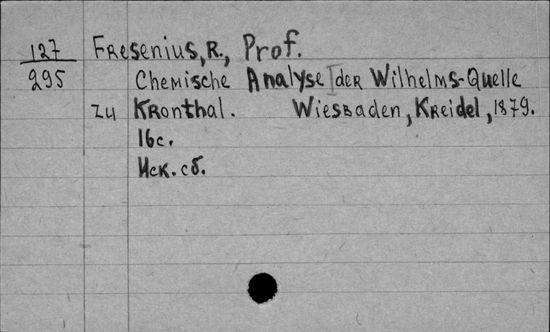 127 Fresenius, R., Prof.
295 Chemische Analyse der Wilhelms-Quelle
zu Kronthal. Wiesbaden, Kreidel, 1879.
16с.
Иск. сб.